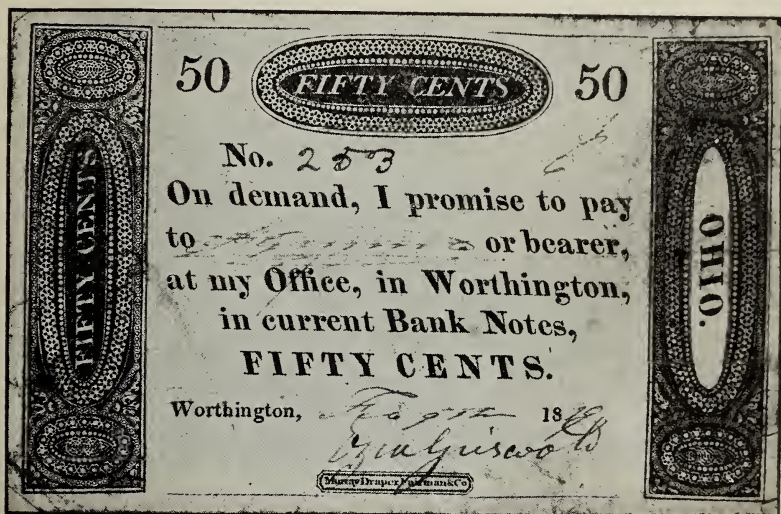 50 FIFTY CENTS 50
No. 253
On demand, I promise to pay
to or bearer,
at my Office, in Worthington,
in current Bank Notes,
FIFTY CENTS.
Worthington, 18
Ezra Griswold
Murray Draper Fairman & Co
FIFTY CENTS
OHIO.